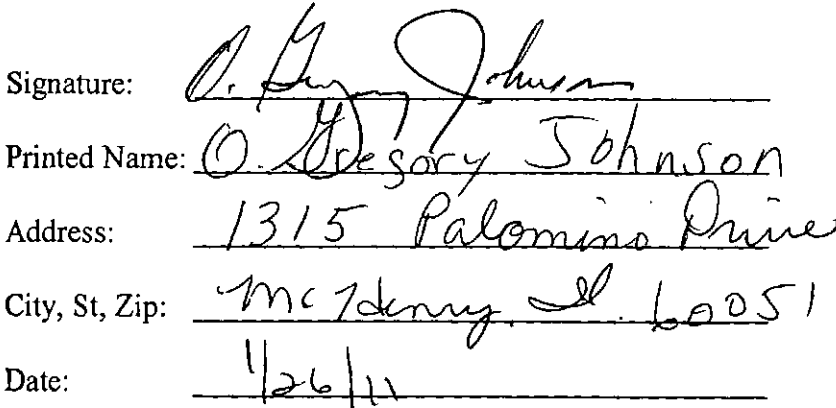 Signature: O. Gregory Johnson
Printed Name: O. Gregory Johnson
Address: 1315 Palomino Drive
City, St, Zip: McHenry, Il. 60051
Date: 1/26/11